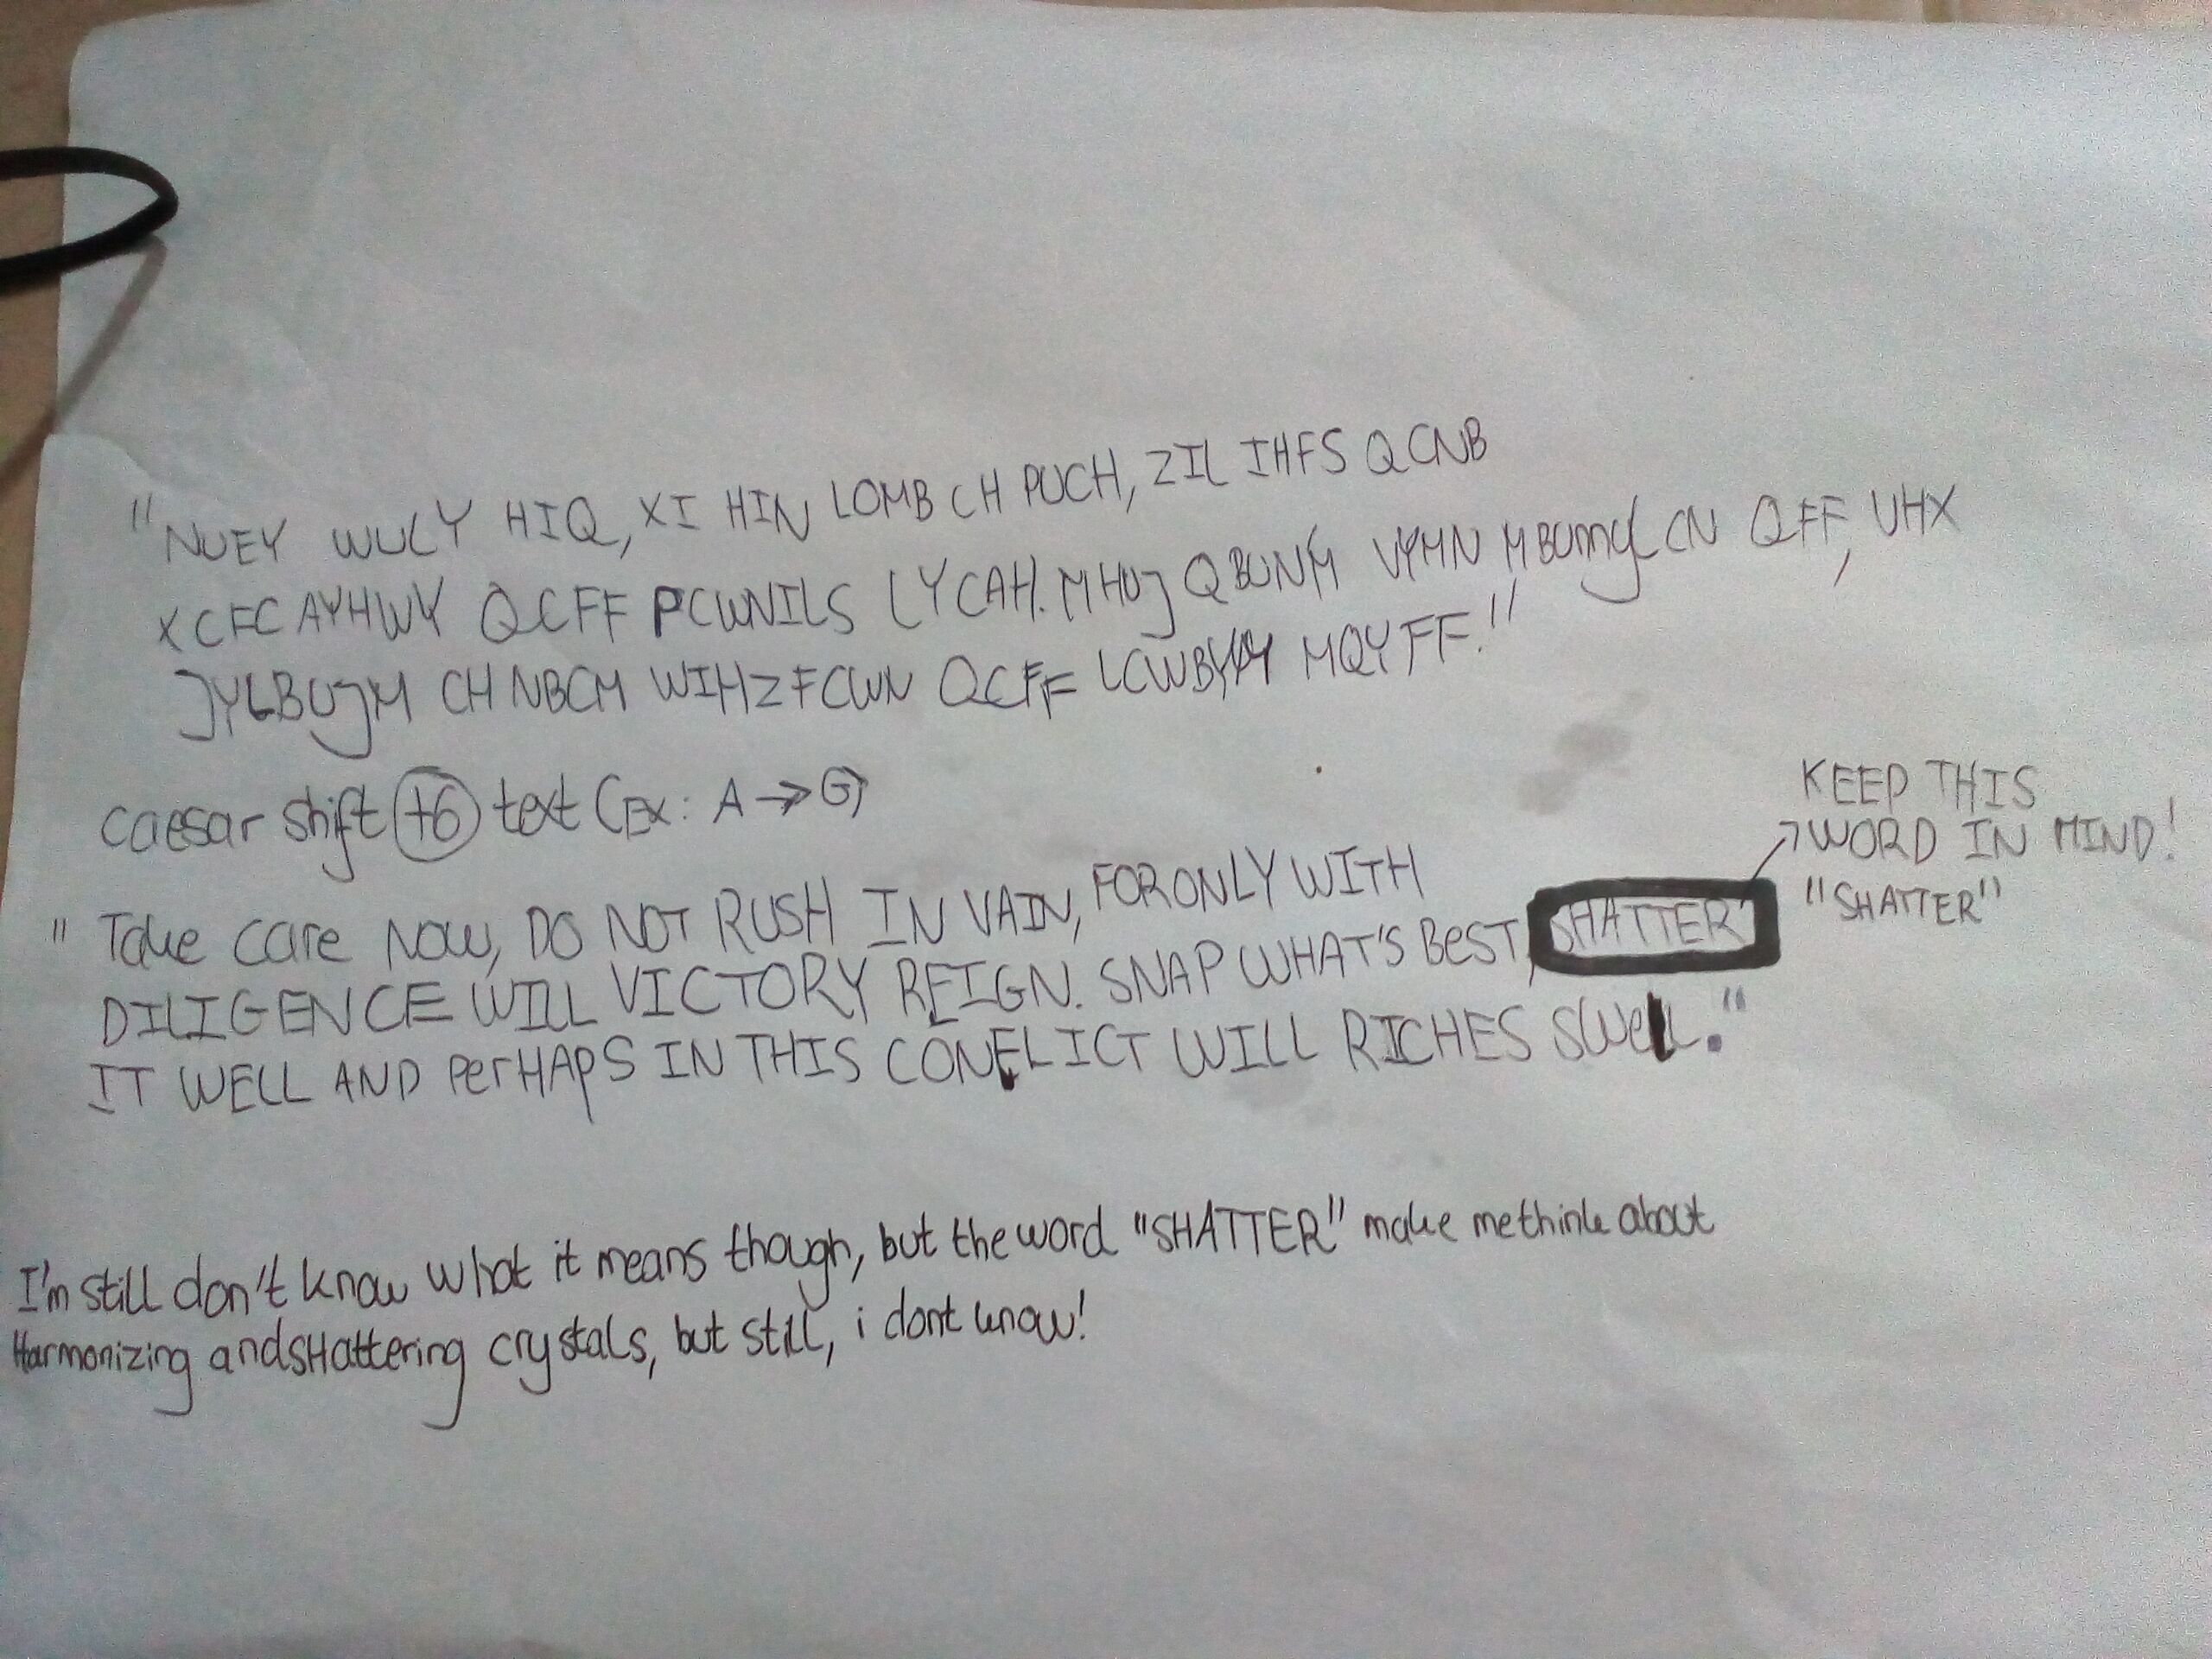 "NUEY WULY HIQ, XI HIN LOMB CH PUCH, ZIL IHFS QCNB
XCFCAYHWY QCFF PCWNILS LYCAH. MHUJ QBUNM VYMN CN QFF, UHX
JYLBUJM CH NBCM WIHZFCWN QCFF MQYFF."
caesar shift +6 text (Ex: A → G)
KEEP THIS
WORD IN MIND!
"SHATTER"
" Take care Now, DO NOT RUSH IN VAIN, FOR ONLY WITH
DILIGENCE WILL VICTORY REIGN. SNAP WHAT'S BeST, SHATTER
IT WELL AND PerHAPS IN THIS CONFLICT WILL RICHES SWell."
I'm still don't know what it means though, but the word "SHATTER" make me think about
Harmonizing and sHattering crystals, but still, i dont know!